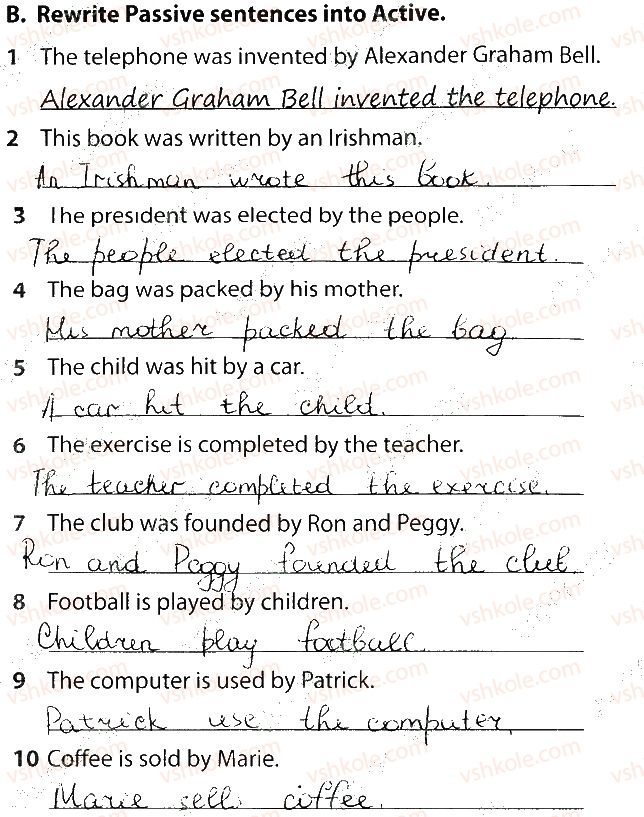 B. Rewrite Passive sentences into Active.
1 The telephone was invented by Alexander Graham Bell.
Alexander Graham Bell invented the telephone.
2 This book was written by an Irishman.
An Irishman wrote this book.
3 The president was elected by the people.
The people elected the president.
4 The bag was packed by his mother.
His mother packed the bag
5 The child was hit by a car.
A car hit the child.
6 The exercise is completed by the teacher.
The teacher completed the exercise.
7 The club was founded by Ron and Peggy.
Ron and Peggy founded the club.
8 Football is played by children.
Children play football.
9 The computer is used by Patrick.
Patrick use the computer.
10 Coffee is sold by Marie.
Marie sells coffee.